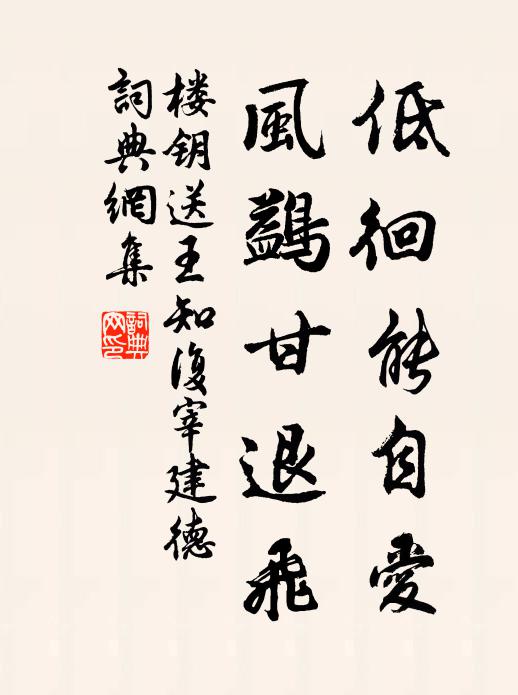 低徊能自愛
風鷁甘退飛
楼钥送王知復宰建德
詞典網集
詞典網印